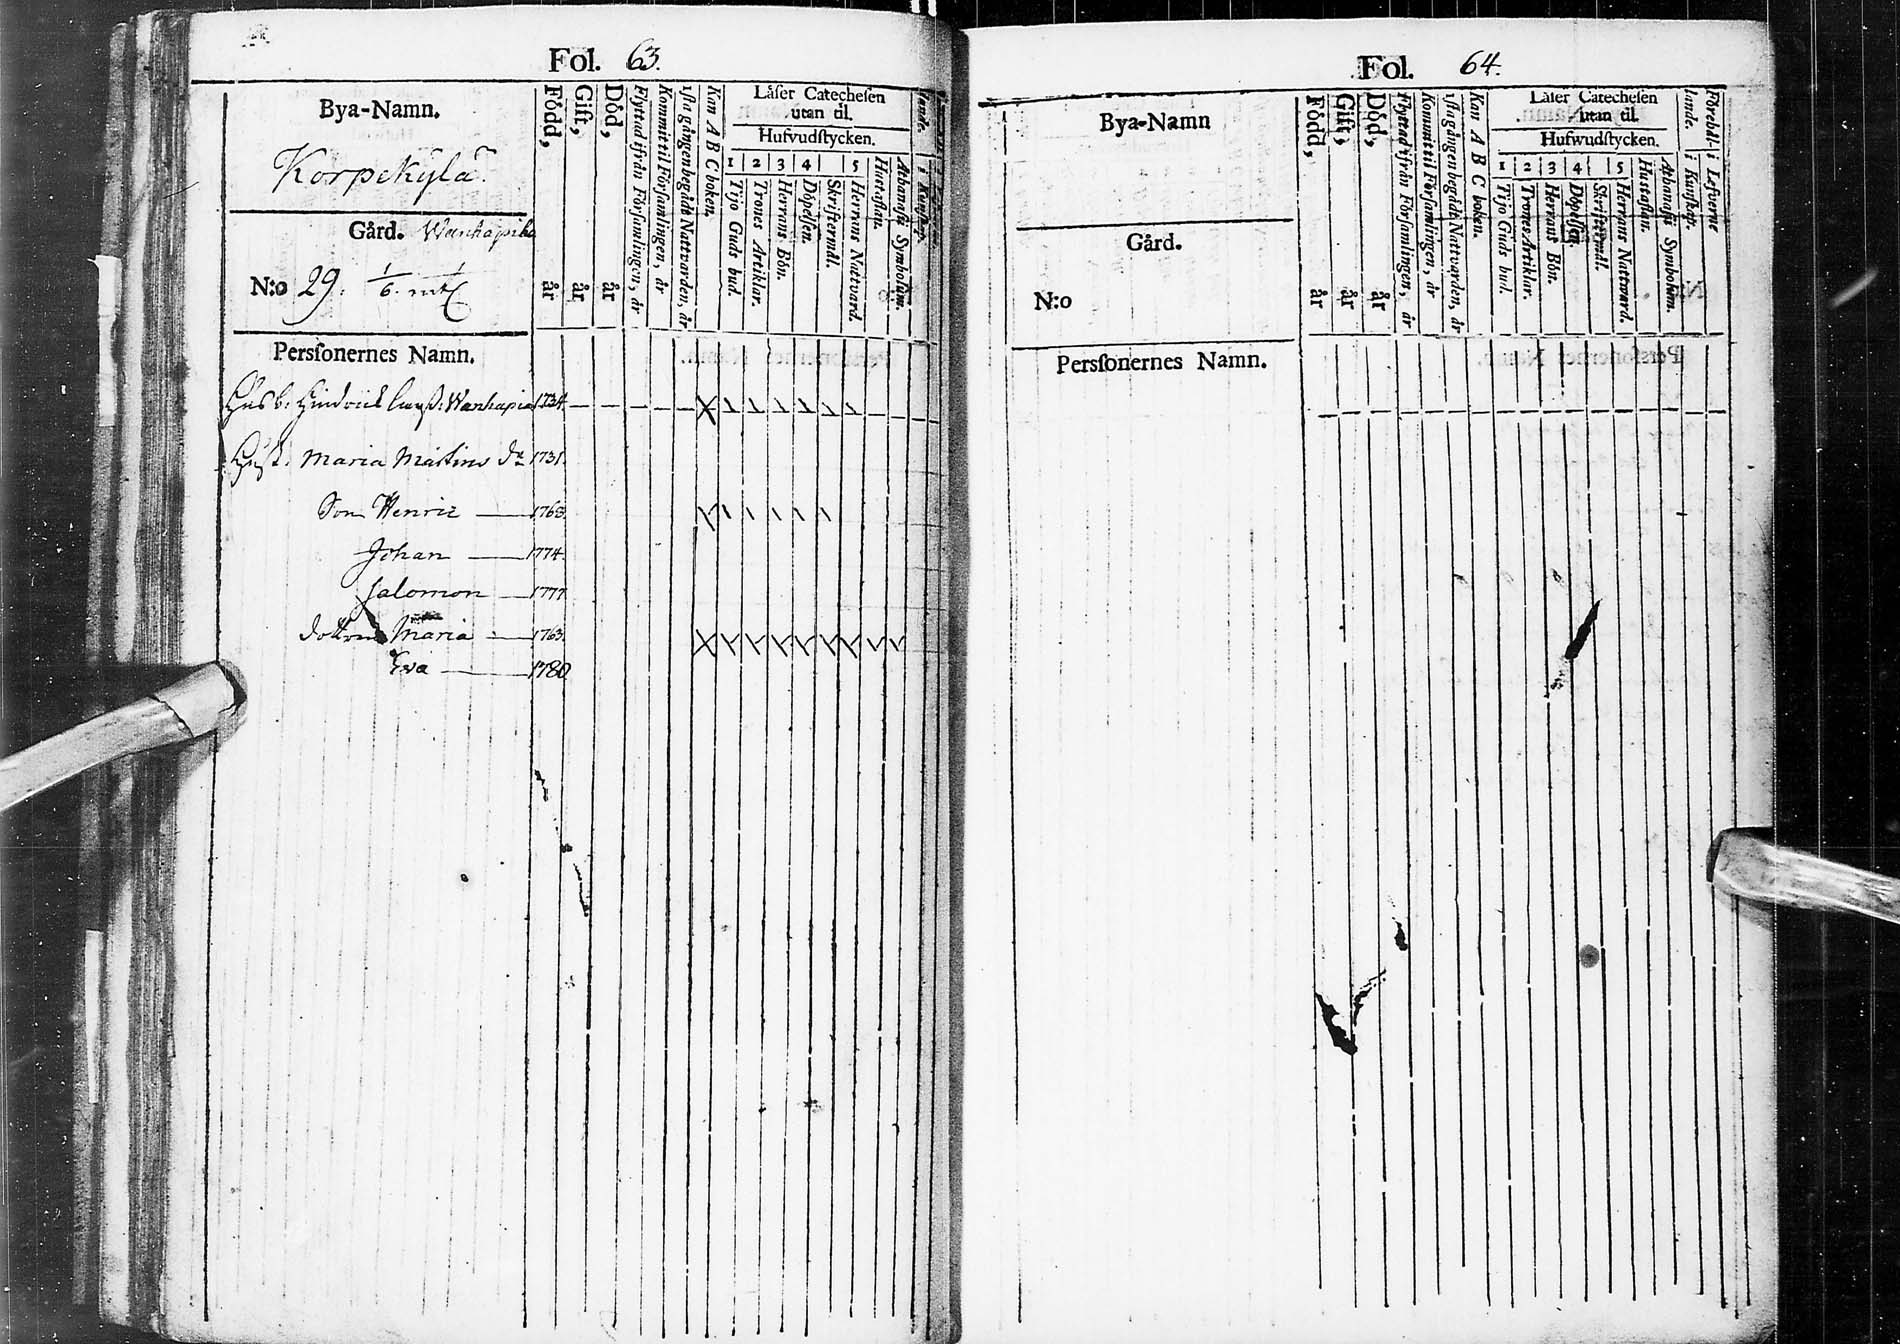 Fol. 63.
Bya-Namn.
Korpekylä.
Gård. Wanhapiha
N:o 29. 1/6. mtl
Född, år
Gift, år
Död, år
Flyttad ifrån Församlingen, år
Kommit til Församlingen, år
1sta gången begådt Nattvarden, år
Kan A B C boken.
Låser Catechesen
utan til.
Hufvudstycken.
1 2 3 4 5
Tijo Guds bud.
Trones Artiklar.
Herrans Bön.
Döpelsen.
Skriftermål.
Herrans Nattvard.
Hustaflan.
Athanasii Symbolum.
i Kunskap.
Persſonernes Namn.
Husb: Hindrick Wanhapiha 1734.
Hust: Maria Mårtins dr 1731.
Son Henric — 1763.
Johan — 1774.
Salomon — 1777.
Maria — 1763.
Eva — 1780
Fol. 64.
Bya-Namn
Gård.
N:o
Född, år
Gift, år
Död, år
Flyttad ifrån Församlingen, år
Kommit til Församlingen, år
1sta gången begådt Nattvarden, år
Kan A B C boken.
Låser Catechesen
utan til.
Hufwudstycken.
1 2 3 4 5
Tijo Guds bud.
Trones Artiklar.
Herrans Bön.
Döpelsen.
Skriftermål.
Herrans Nattward.
Hustaflan.
Athanasii Symbolum.
Förehållande.
i Kunskap.
i Lefverne
Persſonernes Namn.